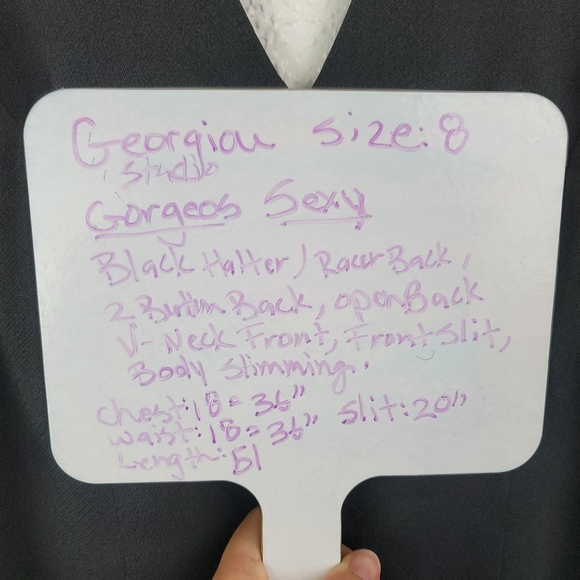 Georgiou Size: 8
Studio
Gorgeos Sexy
Black Halter / Racer Back,
2 Button Back, open Back
V-Neck Front, Front Slit,
Body slimming.
chest: 18 = 36" Slit: 20"
waist: 18 = 36"
Length: 51